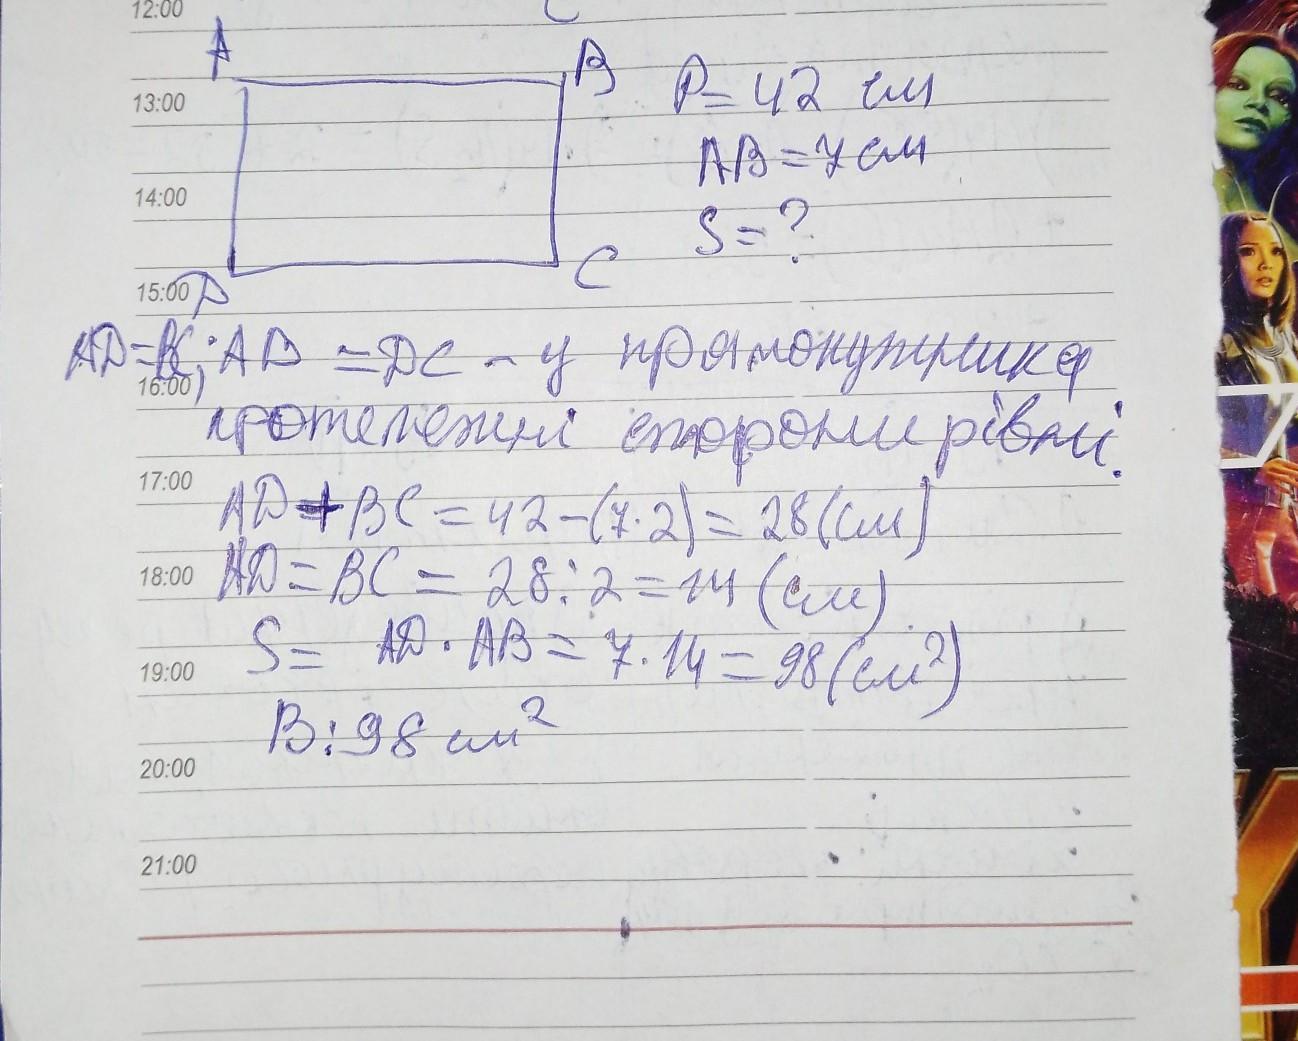 12:00
С
A
B
13:00
P = 42 см
AB = 7 см
14:00
S = ?
C
15:00
D
AD = BC; AB = DC - у прямокутника
16:00
протележні сторони рівні.
17:00
AD + BC = 42 - (7·2) = 28 (см)
18:00
AD = BC = 28 : 2 = 14 (см)
S = AD · AB = 7 · 14 = 98 (см²)
19:00
В: 98 см²
20:00
21:00